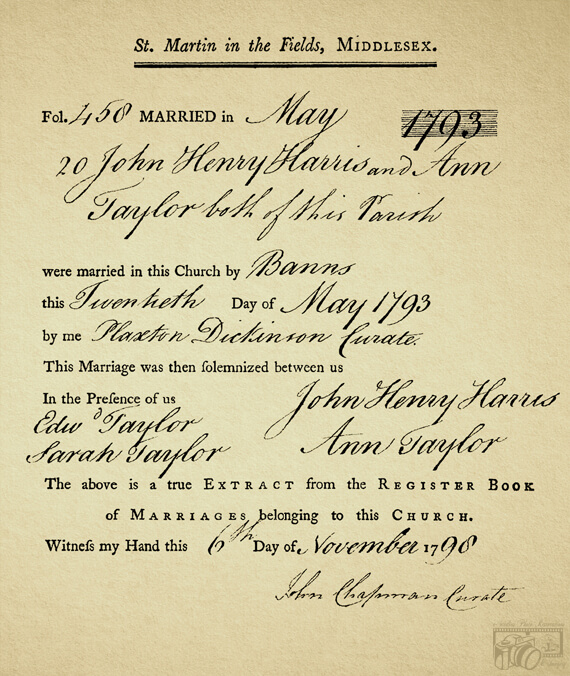 St. Martin in the Fields, MIDDLESEX.
Fol. 458 MARRIED in May 1793
20 John Henry Harris and Ann
Taylor both of this Parish
were married in this Church by Banns
this Twentieth Day of May 1793
by me Plaxton Dickinson Curate.
This Marriage was then ſolemnized between us
In the Preſence of us John Henry Harris
Edwd Taylor Ann Taylor
Sarah Taylor
The above is a true EXTRACT from the REGISTER BOOK
of MARRIAGES belonging to this CHURCH.
Witneſs my Hand this 6th Day of November 1798
John Chapman Curate